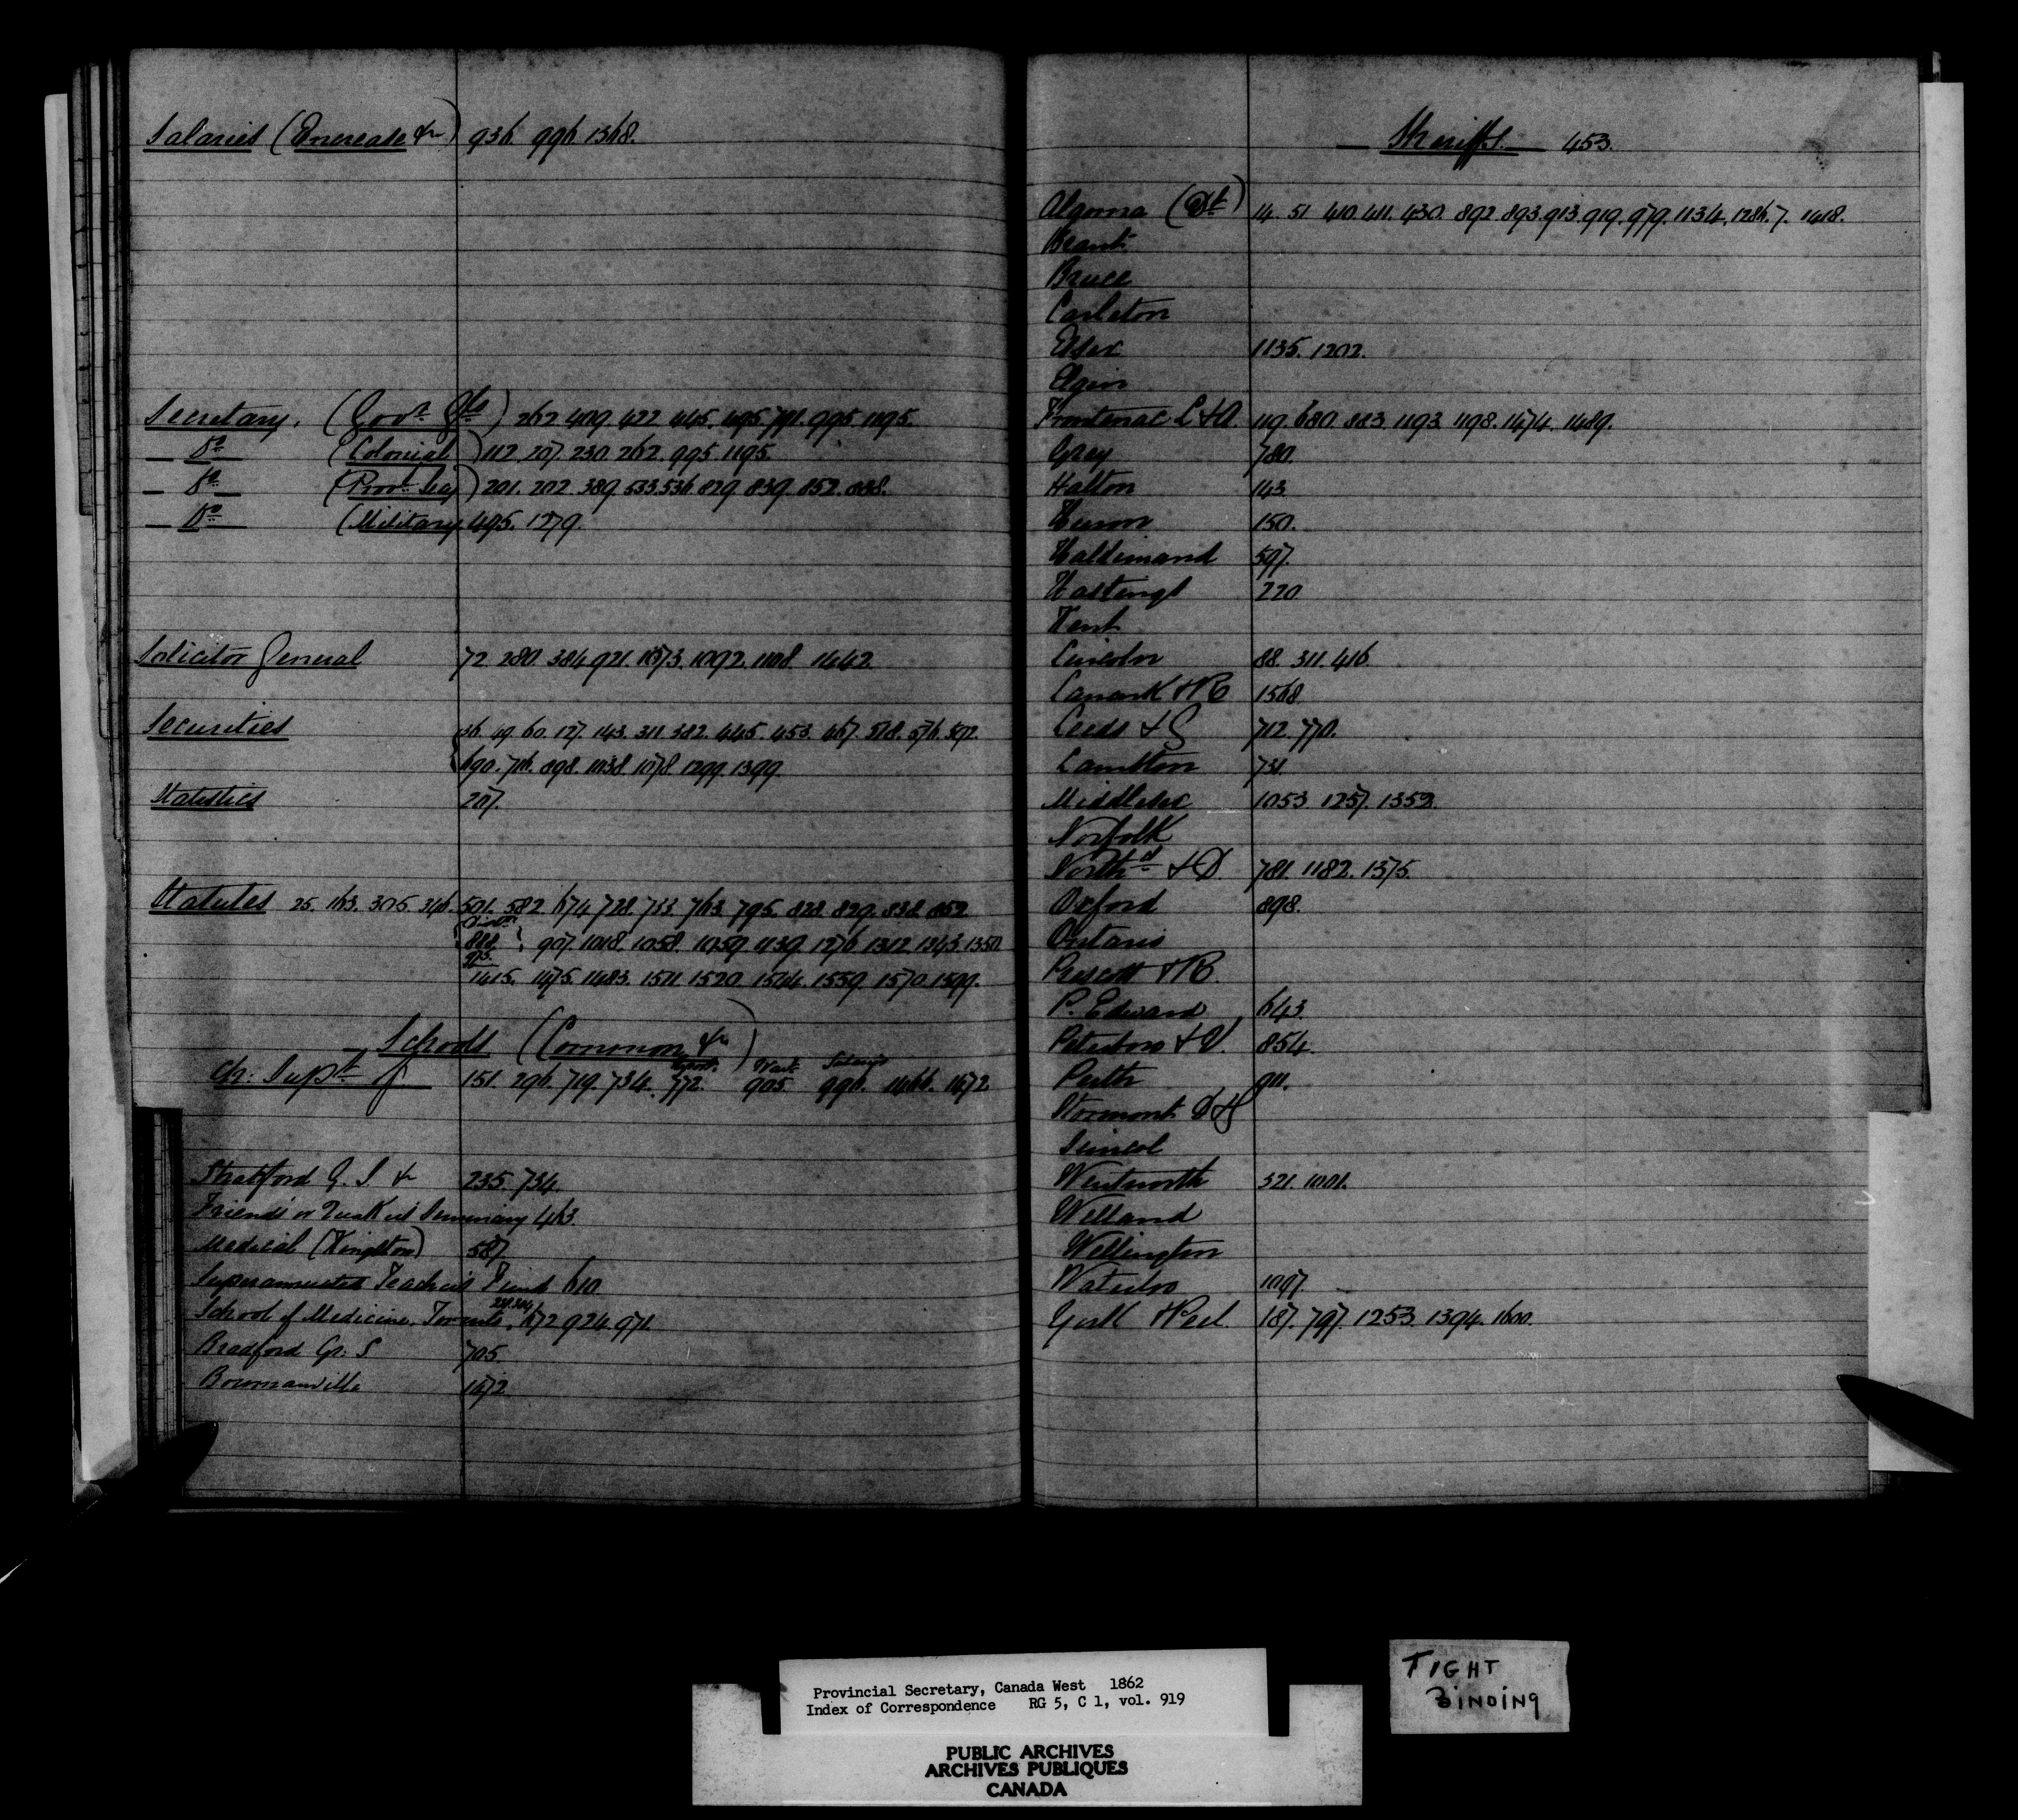 Salaries (Encrease &c) 936. 996. 1368.
Secretary. (Govr Gl) 262. 409. 422. 445. 495. 791. 995. 1195.
— Do — (Colonial) 112. 207. 230. 262. 995. 1195.
— Do — (Provl Cay) 201. 202. 389. 533. 536. 829. 839. 852. 888.
— Do — (Military) 495. 1279.
Solicitor General 72. 280. 384. 921. 1073. 1092. 1108. 1442.
Securities 36. 49. 60. 127. 143. 311. 382. 445. 453. 467. 518. 576. 592.
690. 716. 898. 1038. 1078. 1299. 1399.
Statistics 207.
Statutes 25. 163. 305. 346. 501. 582. 674. 728. 733. 763. 795. 828. 829. 838. 852.
888. 907. 1018. 1058. 1059. 1139. 1276. 1312. 1343. 1350.
1415. 1475. 1483. 1511. 1520. 1544. 1559. 1570. 1599.
Schools (Common &c)
Ch: Supt of 151. 296. 719. 734. 772. 905. 996. 1466. 1672
Stratford G. S. &c 235. 734.
Friends' or Quakers Seminary 463.
Medical (Kingston) 587
Superannuated Teacher's Fund 610
School of Medicine. Toronto. 672. 924. 971.
Bradford Gr: S 705.
Bowmanville 1672
— Sheriffs. — 453.
Algoma (Dt) 14. 51. 410. 411. 430. 892. 893. 913. 919. 979. 1134. 1286. 7. 1418.
Brant
Bruce
Carleton
Essex 1135. 1202.
Elgin
Frontenac L &A 119. 680. 883. 1193. 1198. 1474. 1489.
Grey 780.
Halton 143
Huron 150.
Haldimand 597.
Hastings 220
Kent
Lincoln 88. 311. 416.
Lanark &R 1568
Leeds &G 712. 770.
Lambton 731
Middlesex 1053. 1257. 1352.
Norfolk
Northd &D 781. 1182. 1375.
Oxford 898.
Ontario
Prescott &R.
P. Edward 643.
Peterboro &V. 854.
Perth 911.
Stormont D&G
Simcoe
Wentworth 321. 1001.
Welland
Wellington
Waterloo 1097.
York &Peel 187. 797. 1253. 1394. 1600.
Provincial Secretary, Canada West 1862
Index of Correspondence RG 5, C 1, vol. 919
PUBLIC ARCHIVES
ARCHIVES PUBLIQUES
CANADA
TIGHT
BINDING